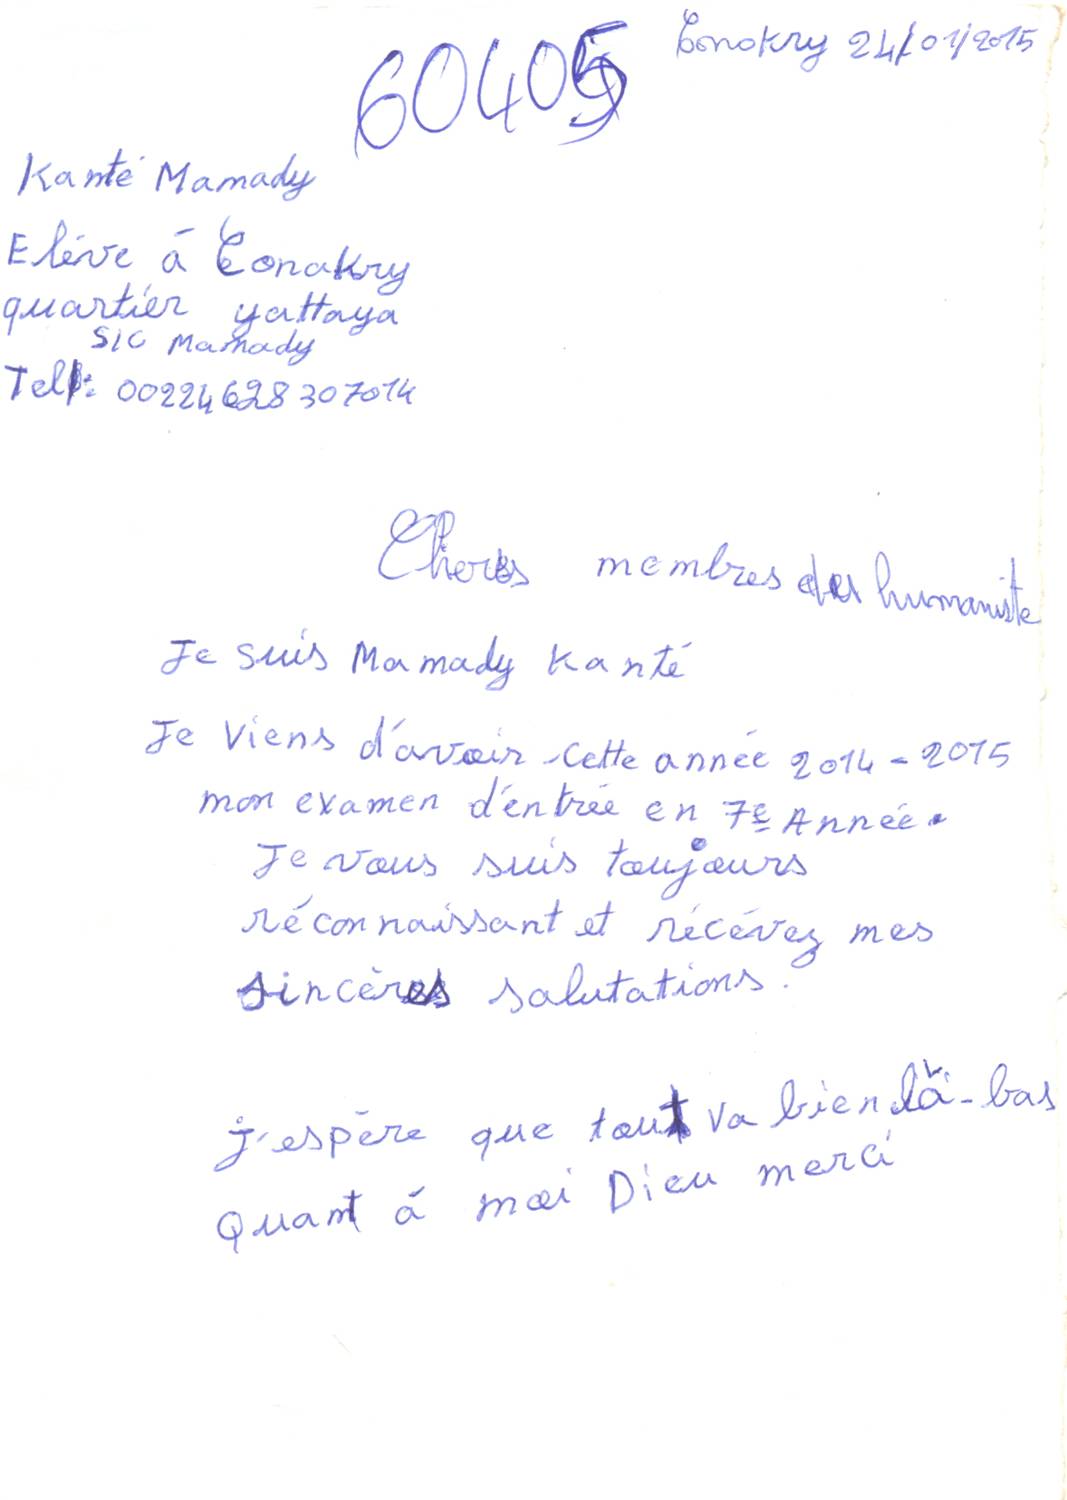 Conakry 24/01/2015
60405
Kanté Mamady
Eléve á Conakry
quartiér yattaya
S/C Mamady
Tel: 00224628307014
Chers membres des humaniste
Je suis Mamady Kanté
Je viens d'avoir cette année 2014-2015
mon examen d'éntrée en 7e Année.
Je vous suis toujours
réconnaissant et récévez mes
sincères salutations.
j'espère que tout va bien là-bas
Quant á moi Dieu merci